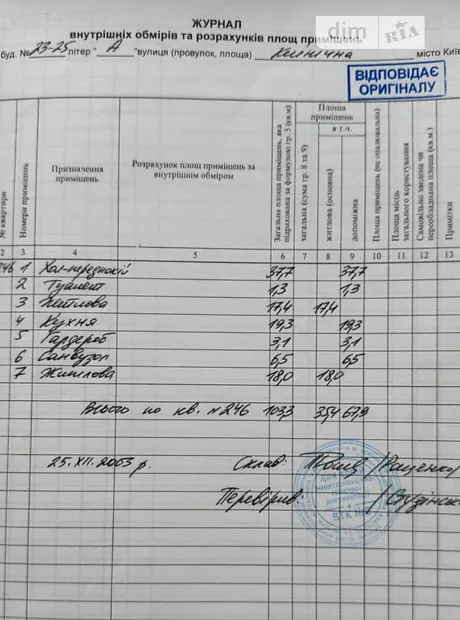 ЖУРНАЛ
внутрішніх обмірів та розрахунків площ приміщень
dim RIA
буд. № 23-25 літер " А " вулиця (провулок, площа) місто Київ
ВІДПОВІДАЄ
ОРИГІНАЛУ
№ квартири
Номери приміщень
Призначення
приміщень
Розрахунок площ приміщень за
внутрішнім обміром
Загальна площа приміщень, яка
підрахована за формулою гр. 5 (кв.м)
Площа
приміщень
загальна (сума гр. 8 та 9)
в т.ч.
житлова (основна)
допоміжна
Площа приміщень (не опалювальна)
Площа місць
загального користування
Самовільно зведена чи
переобладнана площа (кв.м.)
Примітки
2 3 4 5 6 7 8 9 10 11 12 13
246 1 Хол-передпокій 37,7 37,7
2 Туалет 1,3 1,3
3 Житлова 17,4 17,4
4 Кухня 19,3 19,3
5 Гардероб 3,1 3,1
6 Санвузол 6,5 6,5
7 Житлова 18,0 18,0
Всього по кв. №246 103,3 35,4 67,9
25. XII. 2003 р. Склав:
Перевірив: